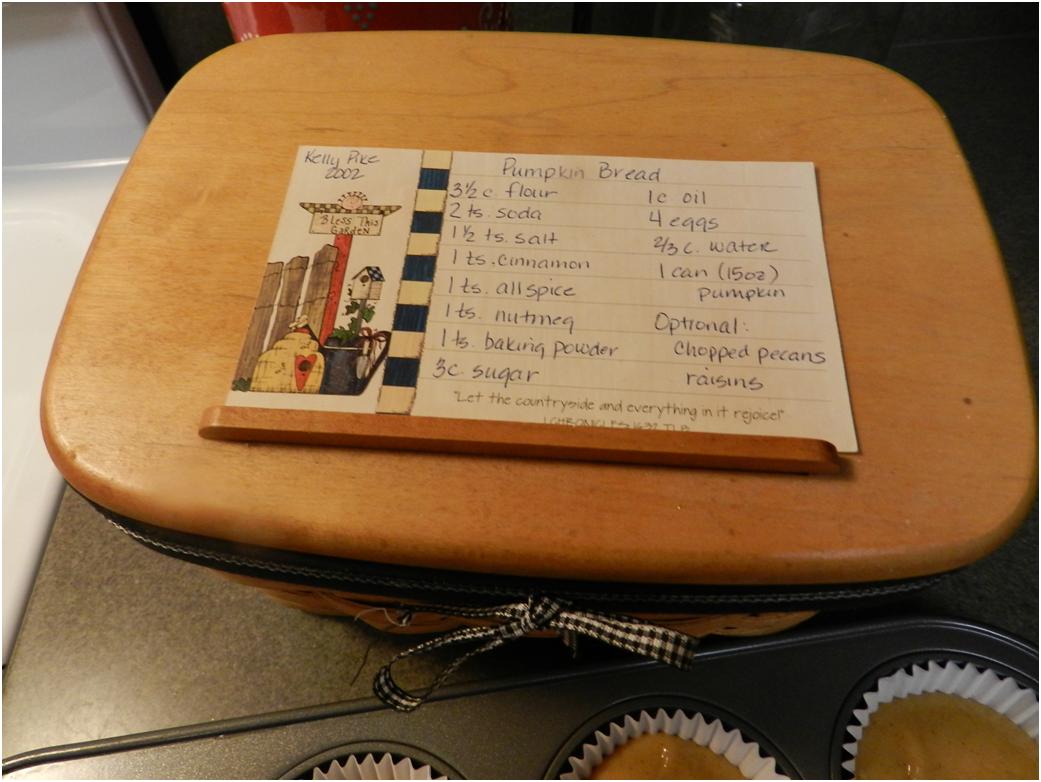 Kelly Pike
2002
Bless This
Garden
Pumpkin Bread
3½ c. flour
2 ts. soda
1½ ts. salt
1 ts. cinnamon
1 ts. allspice
1 ts. nutmeg
1 ts. baking powder
3c. sugar
1c oil
4 eggs
2/3 c. water
1 can (15oz)
pumpkin
Optional:
Chopped pecans
raisins
"Let the countryside and everything in it rejoice!"
1 CHRONICLES 16:32 TLB